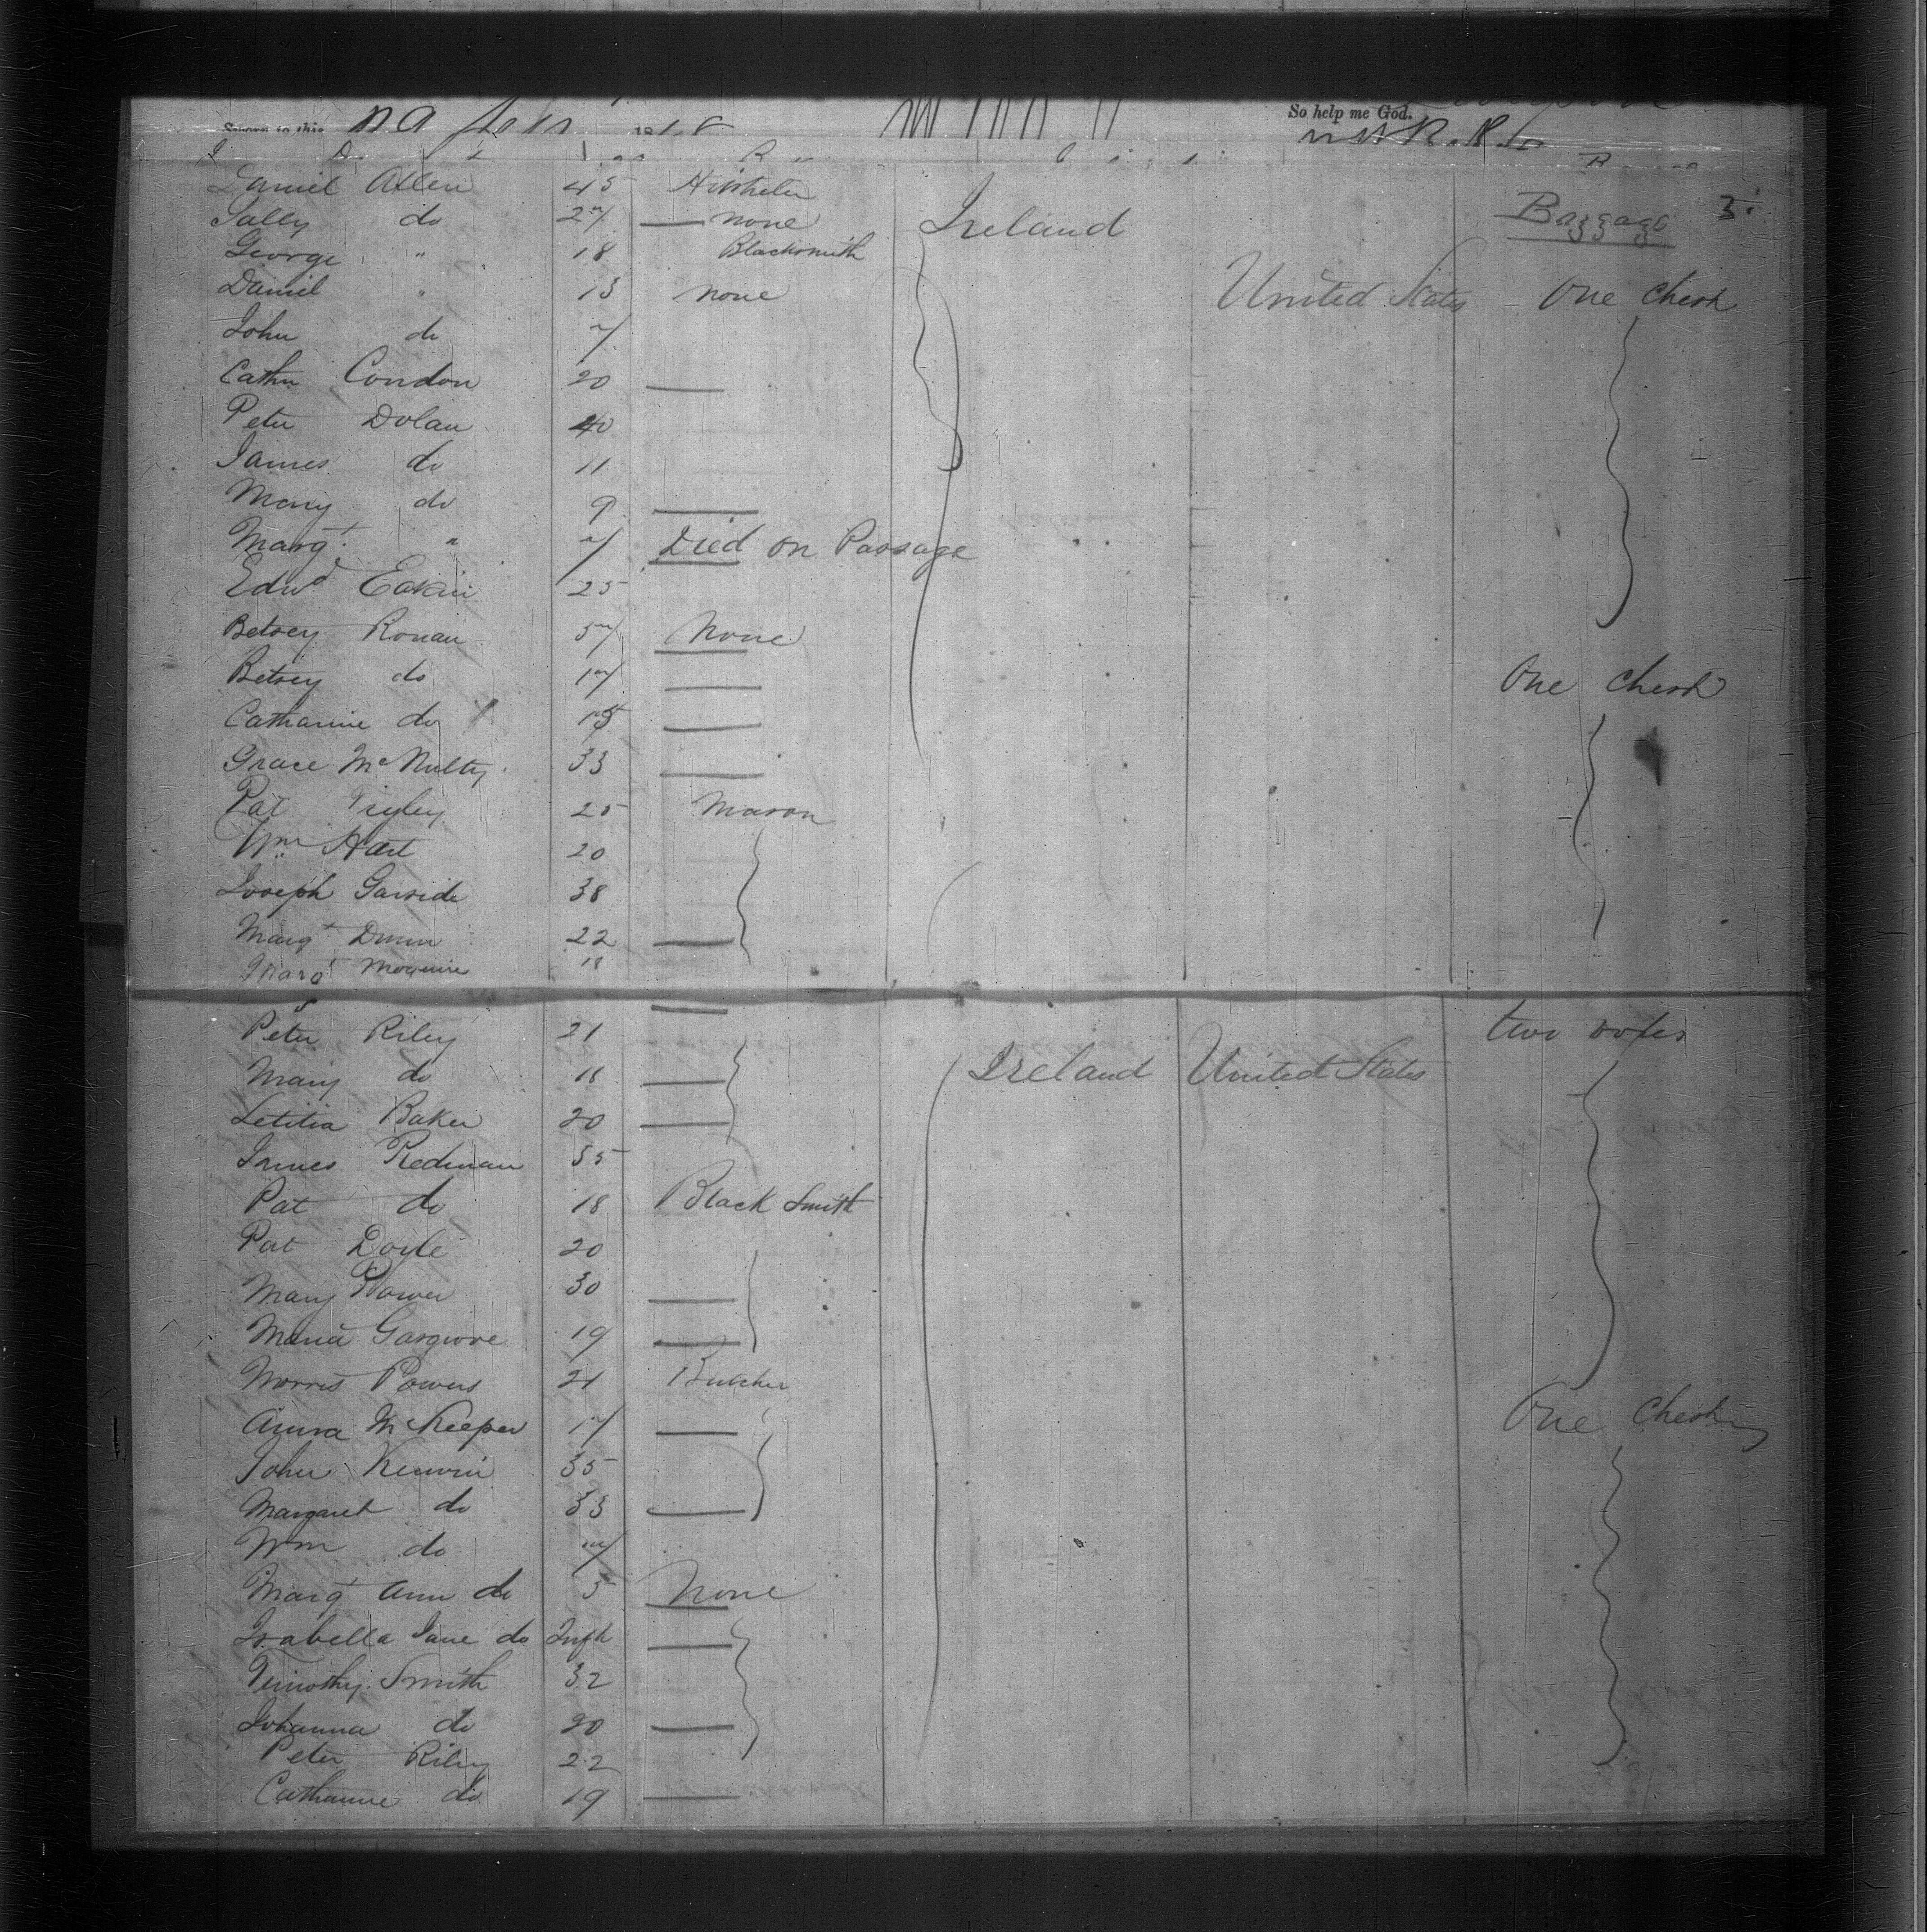 So help me God.
Sworn to this
Baggage 3.
Daniel Allen 45
Sally do 27 none Ireland
George " 18 Blacksmith
Daniel " 13 none United States One Chest
John do 7
Cathn Condon 20
Peter Dolan 40
James do 11
Mary do 9
Margt " 7 Died on Passage
Edwd Eakin 25
Betsey Ronan 57 None
Betsey do 17 One Chest
Catharine do 15
Grace McNulty 33
Pat 25 Mason
Wm Hart 20
Joseph Garside 38
Margt Dunn 22
Margt Moguire 18
Peter Riley 21 two boxes
Mary do 18 Ireland United States
Letitia Baker 20
James Redman 55
Pat do 18 Black Smith
Pat Doyle 20
Mary Power 30
Maria Gasgrove 19
Morris Powers 21 Butcher
Anna McKeeper 17 One Chest
John Kerwin 35
Margaret do 33
Wm do 7
Margt Ann do 5 None
Isabella Jane do Inft
Timothy Smith 32
Johanna do 20
Peter Riley 22
Catharine do 19